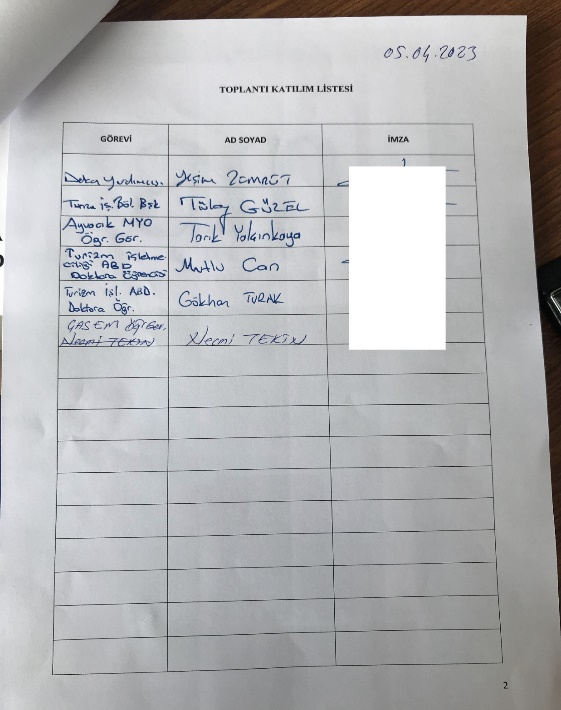 05.04.2023
TOPLANTI KATILIM LİSTESİ
GÖREVİ AD SOYAD İMZA
Dekan Yardımcısı. Yeşim ZÜMRÜT
Turizm İş. Böl. Bşk Tülay GÜZEL
Ayvacık MYO
Öğr. Gör. Tarık Yalçınkaya
Turizm işletme-
ciliği ABD
Doktora öğrencisi Mutlu Can
Turizm İşl. ABD.
Doktora Öğr. Gökhan TURAK
ÇASEM Öğr Gör.
Necmi TEKİN Necmi TEKİN
2